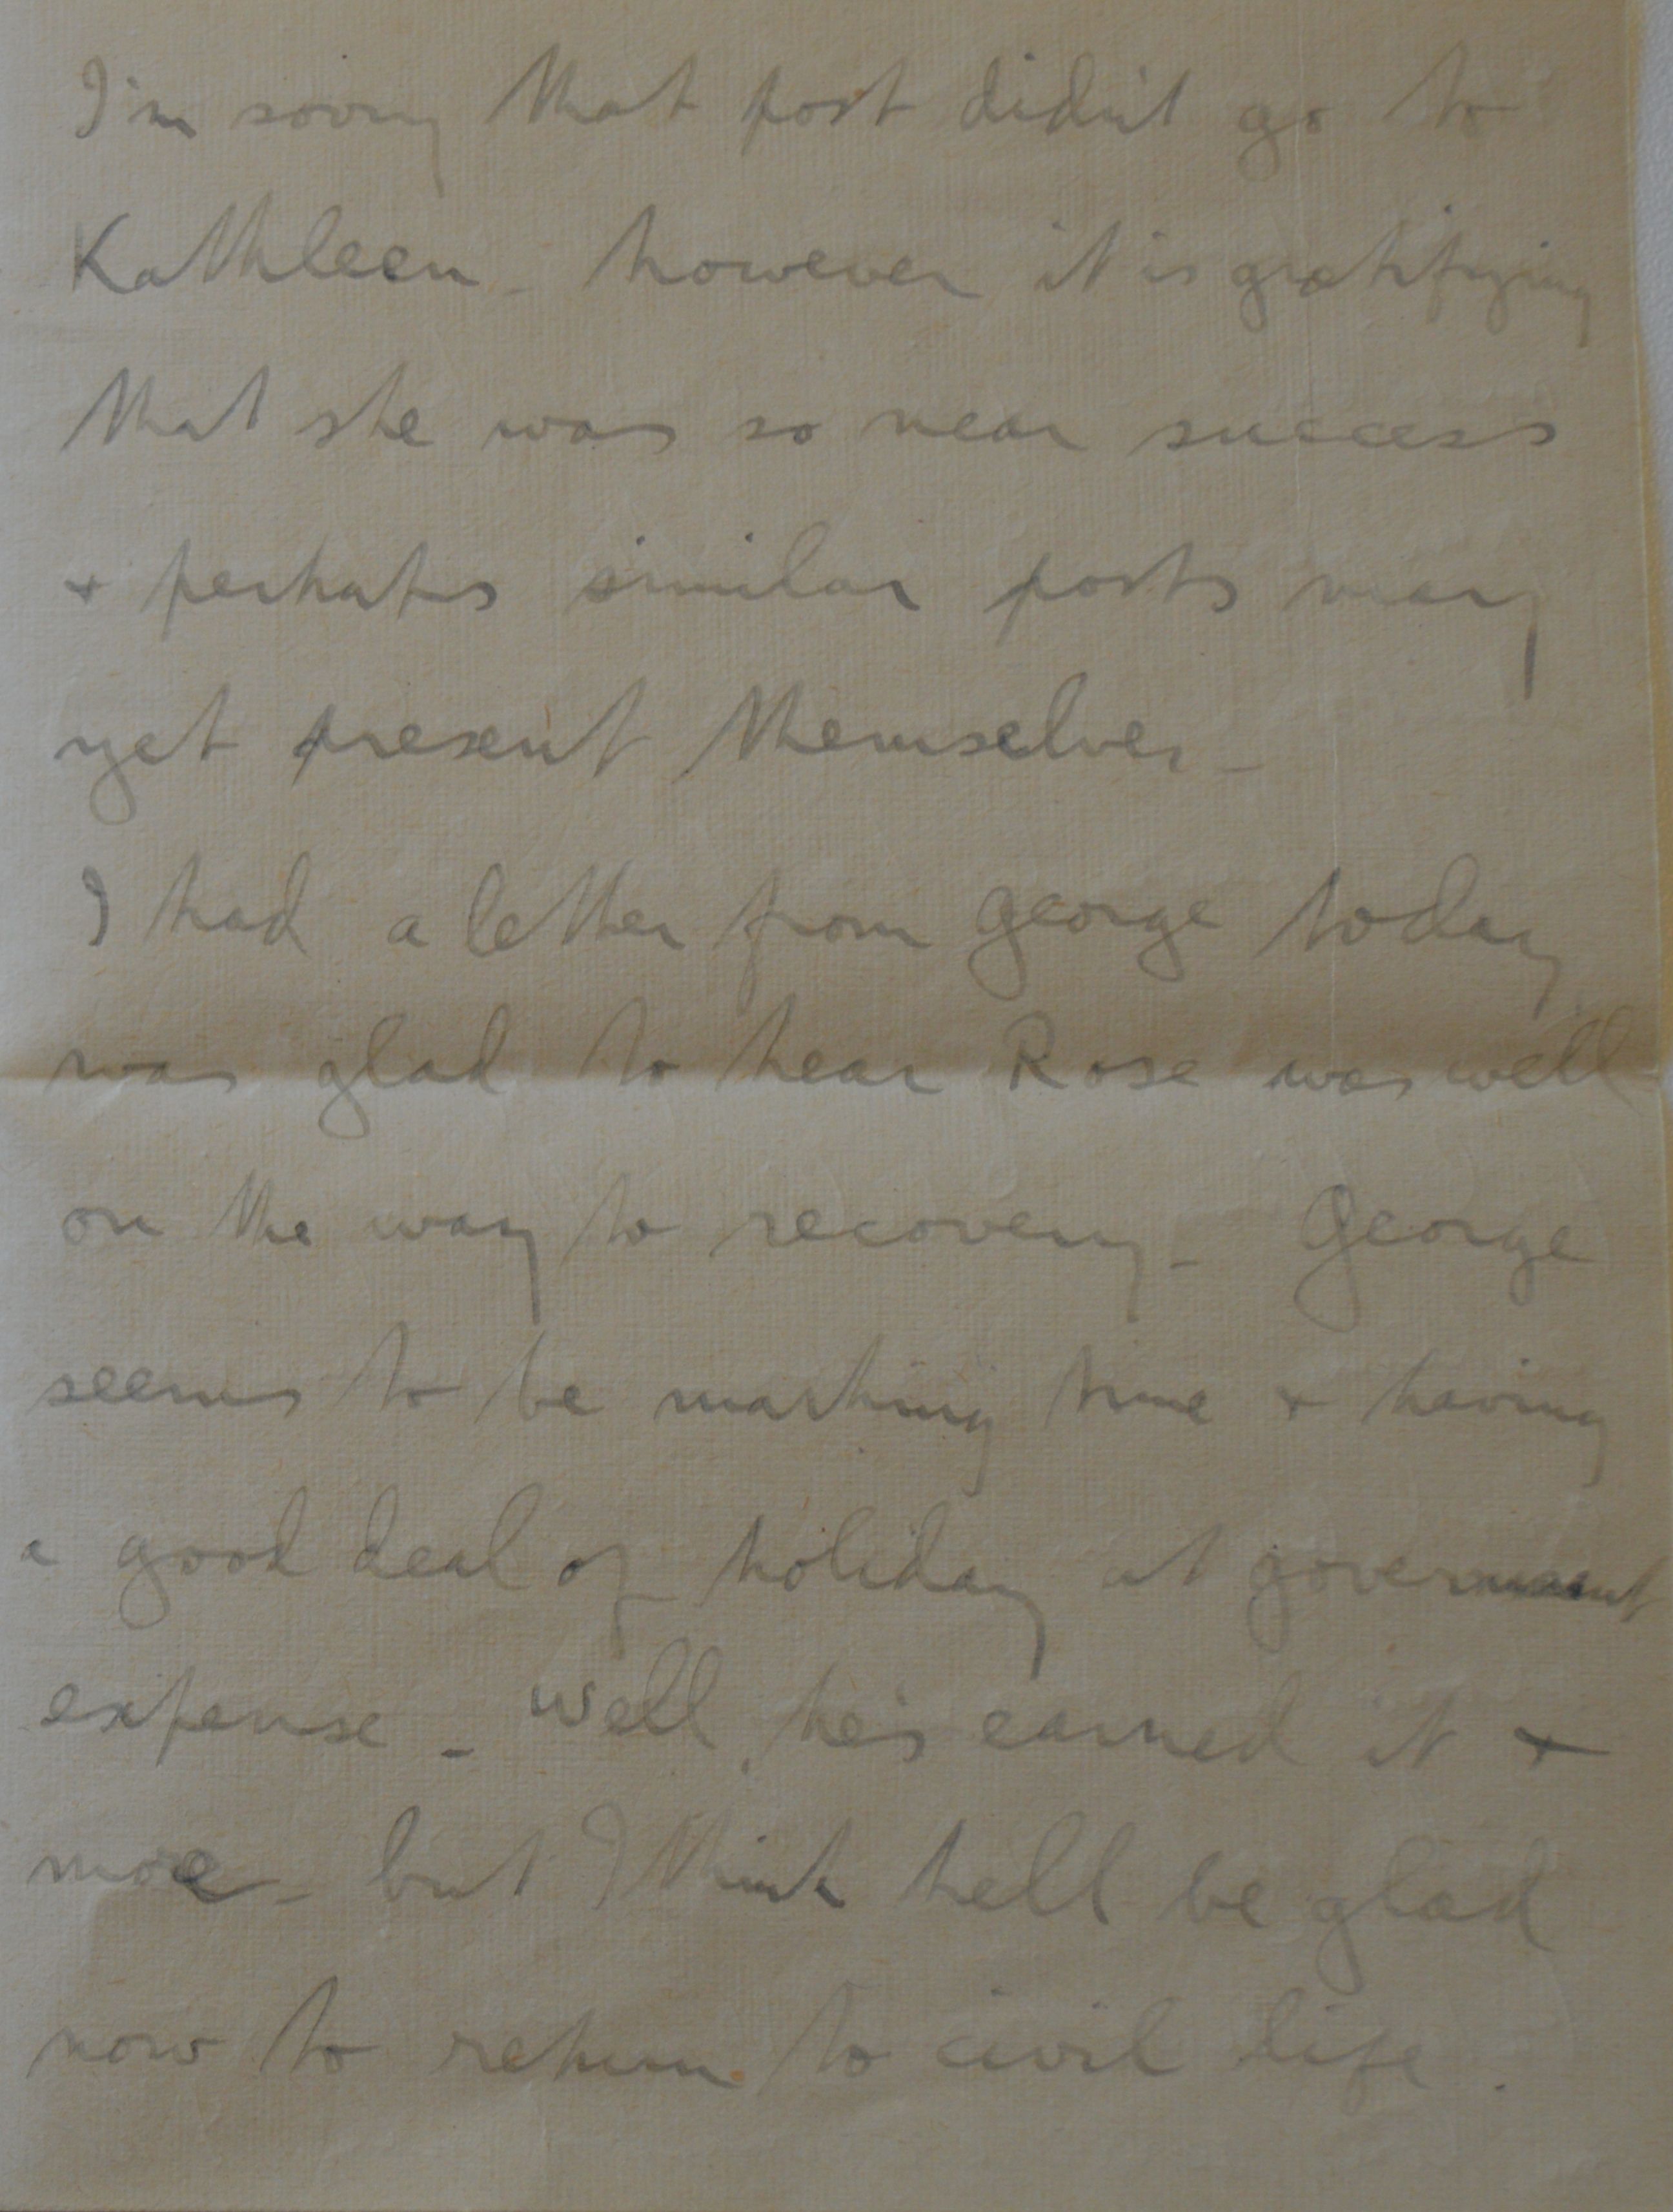 I'm sorry that post didn't go to
Kathleen - however it is gratifying
that she was so near success
+ perhaps similar posts may
yet present themselves -
I had a letter from George today
was glad to hear Rose was well
on the way to recovery - George
seems to be marking time + having
a good deal of holiday at government
expense - well, he's earned it +
more - but I think he'll be glad
now to return to civil life.